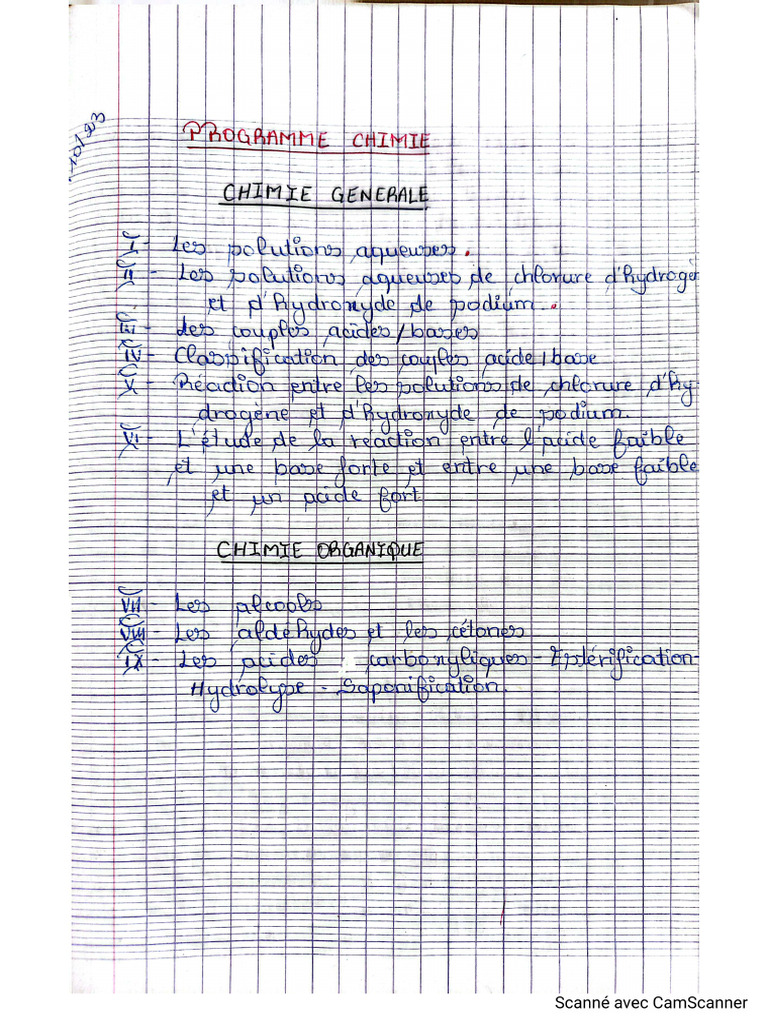 10/23
PROGRAMME CHIMIE
CHIMIE GENERALE
I - Les solutions aqueuses.
II - Les solutions aqueuses de chlorure d'hydrogè
et d'hydroxyde de sodium.
III - Les couples acides/bases
IV - Classification des couples acide/base
V - Réaction entre les solutions de chlorure d'hy-
drogène et d'hydroxyde de sodium.
VI - L'étude de la reaction entre l'acide faible
et une base forte et entre une base faible
et un acide fort
CHIMIE ORGANIQUE
VII - Les alcools
VIII - Les aldéhydes et les cétones
IX - Les acides carboxyliques - Estérification-
Hydrolyse - Saponification.
Scanné avec CamScanner